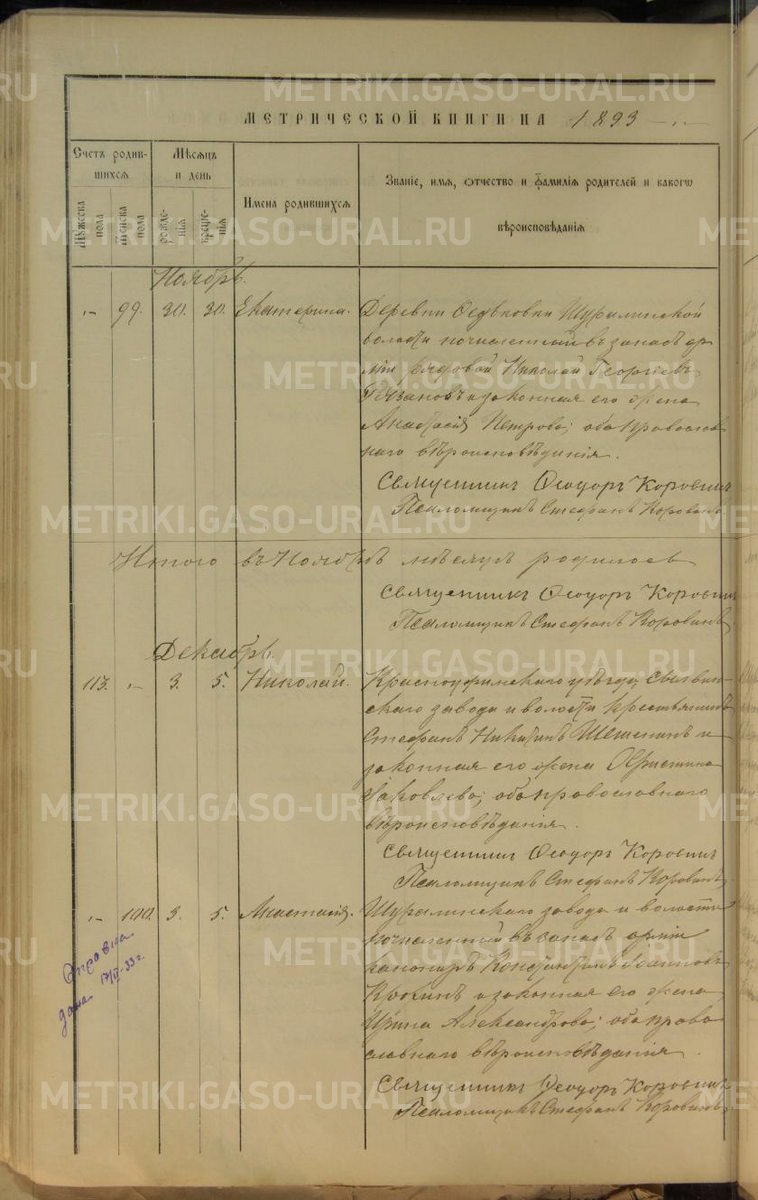 METRIKI.GASO-URAL.RU
МЕТРИЧЕСКОЙ КНИГИ НА 1893
Счетъ родившихся
Мѣсяцъ и день
Имена родившихся
Званіе, имя, отчество и фамилія родителей и какого вѣроисповѣданія
Мужеска пола
Женска пола
рожденія
крещенія
Ноябрь.
99. 30. 30. Екатерина.
Деревни Федьковки Шуралинской
волости зачисленный въ запасъ ар
міи рядовой Николай Георгіевъ
и законная его жена
Анастасія Петрова; оба православ
наго вѣроисповѣданія.
Священникъ Ѳеодоръ Коровинъ
Псаломщикъ Стефанъ Коровинъ
Итого въ Ноябрѣ мѣсяцѣ родилось
Священникъ Ѳеодоръ Коровинъ
Псаломщикъ Стефанъ Коровинъ
Декабрь.
113. 3. 5. Николай.
Красноуфимскаго уѣзда Сылвин
скаго завода и волости крестьянинъ
Стефанъ Никитинъ и
законная его жена Христина
Яковлева; оба православнаго
вѣроисповѣданія.
Священникъ Ѳеодоръ Коровинъ
Псаломщикъ Стефанъ Коровинъ
100. 3. 5. Анастасія.
Шуралинскаго завода и волости
зачисленный въ запасъ арміи
канониръ Константинъ Іоанновъ
и законная его жена
Ирина Александрова; оба право
славнаго вѣроисповѣданія.
Священникъ Ѳеодоръ Коровинъ
Псаломщикъ Стефанъ Коровинъ
Справка
дана 17/II-33 г.